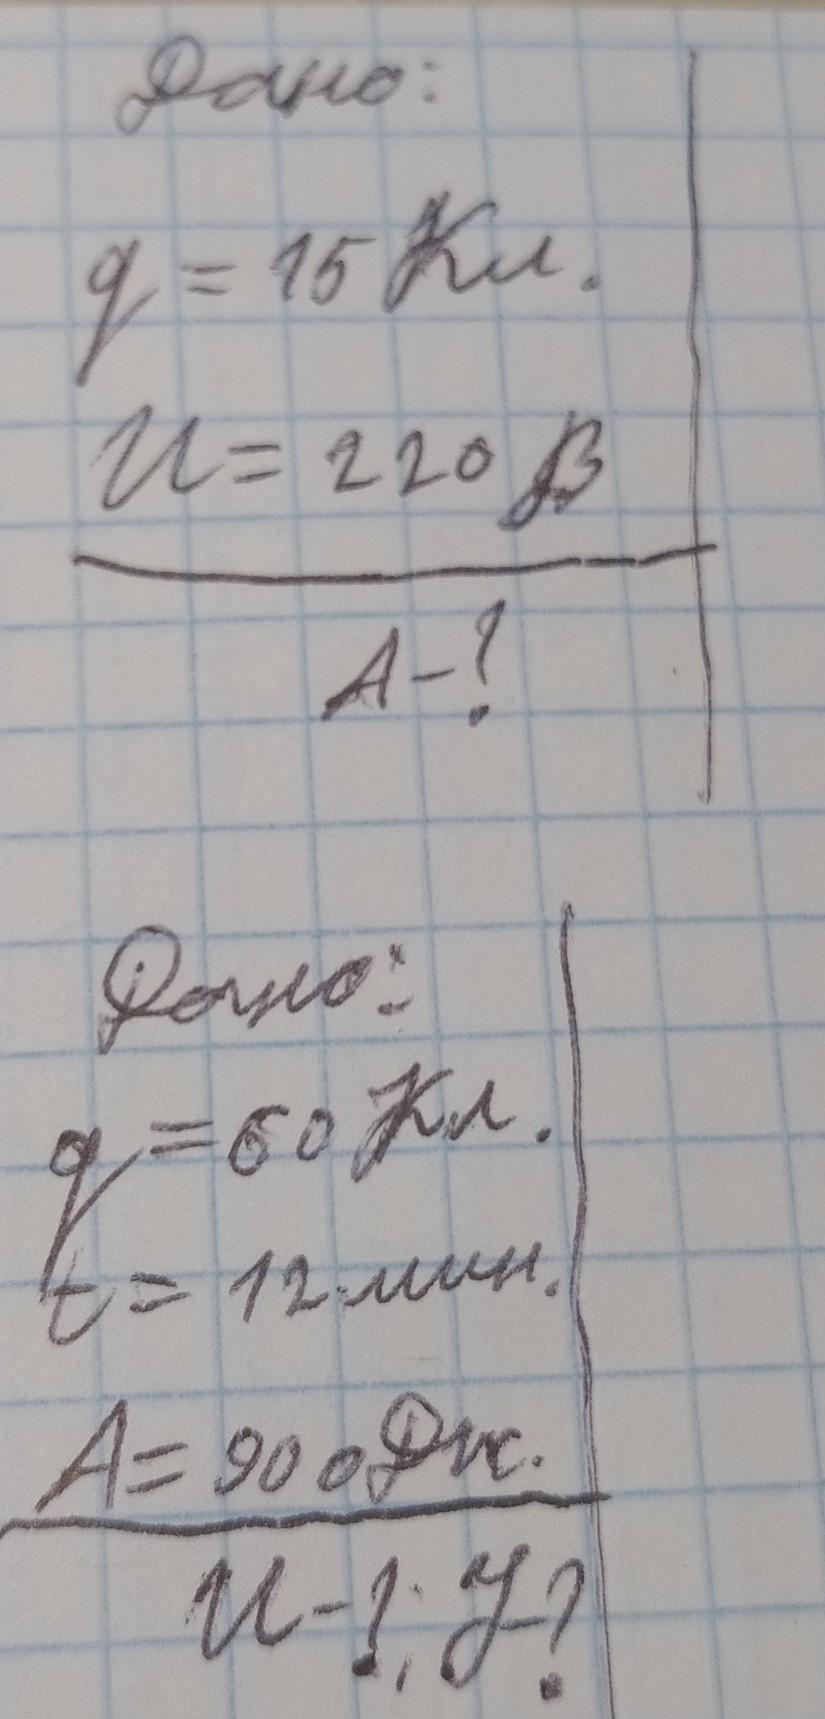 Дано:
q = 15 Кл.
U = 220 В
A - ?
Дано:
q = 60 Кл.
t = 12 мин.
A = 900 Дж.
U - ?; J - ?